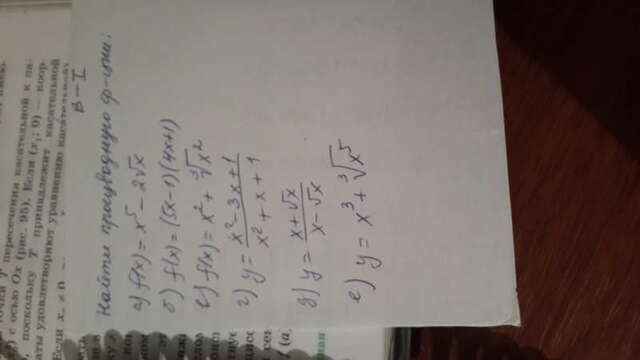 точки T пересечения касательной к па-
) с осью Ox (рис. 95). Если (x₁; 0) — коор-
поскольку T принадлежит касательной
аты удовлетворяют уравнению касательной)
Если x₀ ≠ 0,
В - I
Найти производную ф-ции:
а) f(x) = x⁵ - 2√x
б) f(x) = (5x-1)(4x+1)
в) f(x) = x² + ∛x²
г) y = (x²-3x+1)/(x²+x+1)
д) y = (x+√x)/(x-√x)
е) y = x³ + ∛x⁵